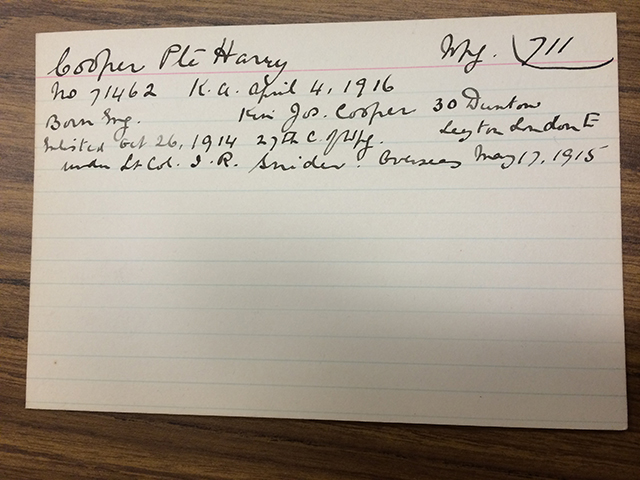 Cooper Pte Harry Wpg. 711
No 71462 K.a. April 4, 1916
Born Eng. Kin Jos. Cooper 30 Dunton
Enlisted Oct 26, 1914 27th C. of Wpg. Leyton London E
under Lt Col. I. R. Snider. Overseas May 17, 1915